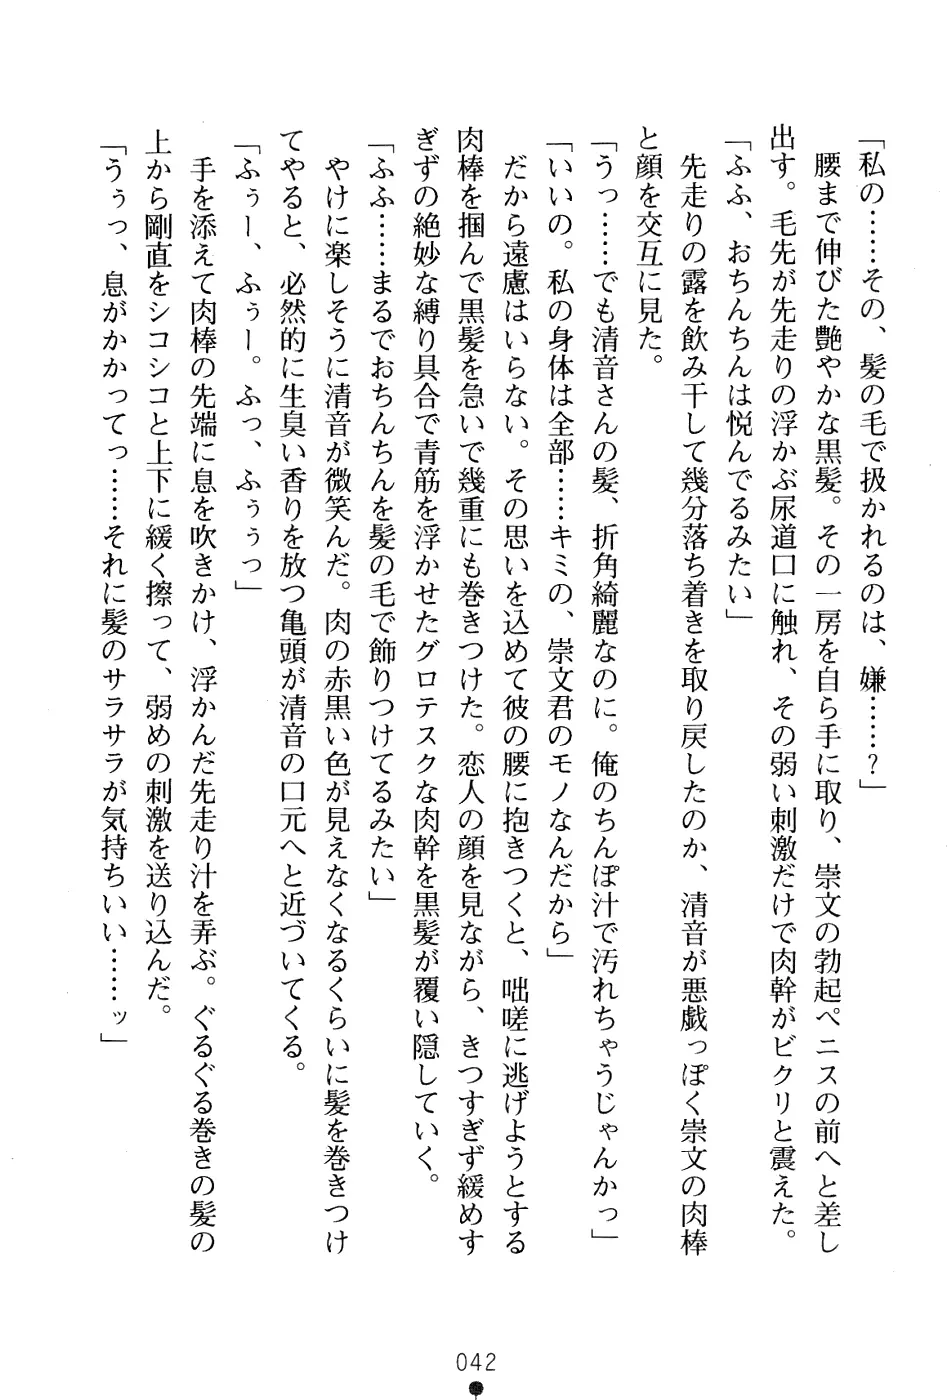 「私の……その、髪の毛で扱かれるのは、嫌……？」
　腰まで伸びた艶やかな黒髪。その一房を自ら手に取り、崇文の勃起ペニスの前へと差し
出す。毛先が先走りの浮かぶ尿道口に触れ、その弱い刺激だけで肉幹がビクリと震えた。
「ふふ、おちんちんは悦んでるみたい」
　先走りの露を飲み干して幾分落ち着きを取り戻したのか、清音が悪戯っぽく崇文の肉棒
と顔を交互に見た。
「うっ……でも清音さんの髪、折角綺麗なのに。俺のちんぽ汁で汚れちゃうじゃんかっ」
「いいの。私の身体は全部……キミの、崇文君のモノなんだから」
　だから遠慮はいらない。その思いを込めて彼の腰に抱きつくと、咄嗟に逃げようとする
肉棒を掴んで黒髪を急いで幾重にも巻きつけた。恋人の顔を見ながら、きつすぎず緩めす
ぎずの絶妙な縛り具合で青筋を浮かせたグロテスクな肉幹を黒髪が覆い隠していく。
「ふふ……まるでおちんちんを髪の毛で飾りつけてるみたい」
　やけに楽しそうに清音が微笑んだ。肉の赤黒い色が見えなくなるくらいに髪を巻きつけ
てやると、必然的に生臭い香りを放つ亀頭が清音の口元へと近づいてくる。
「ふぅー、ふぅー。ふっ、ふぅぅっ」
　手を添えて肉棒の先端に息を吹きかけ、浮かんだ先走り汁を弄ぶ。ぐるぐる巻きの髪の
上から剛直をシコシコと上下に緩く擦って、弱めの刺激を送り込んだ。
「うぅっ、息がかかってっ……それに髪のサラサラが気持ちいい……ッ」
042